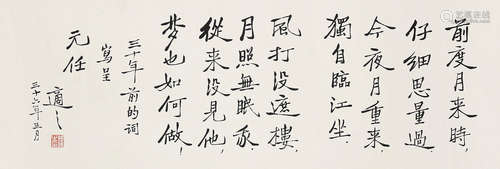 前度月來時，
仔細思量過。
今夜月重來，
獨自臨江坐。
風打沒遮樓，
月照無眠我。
從來沒見他，
夢也如何做。
三十年前的詞
寫呈
元任
適之
三十六年五月